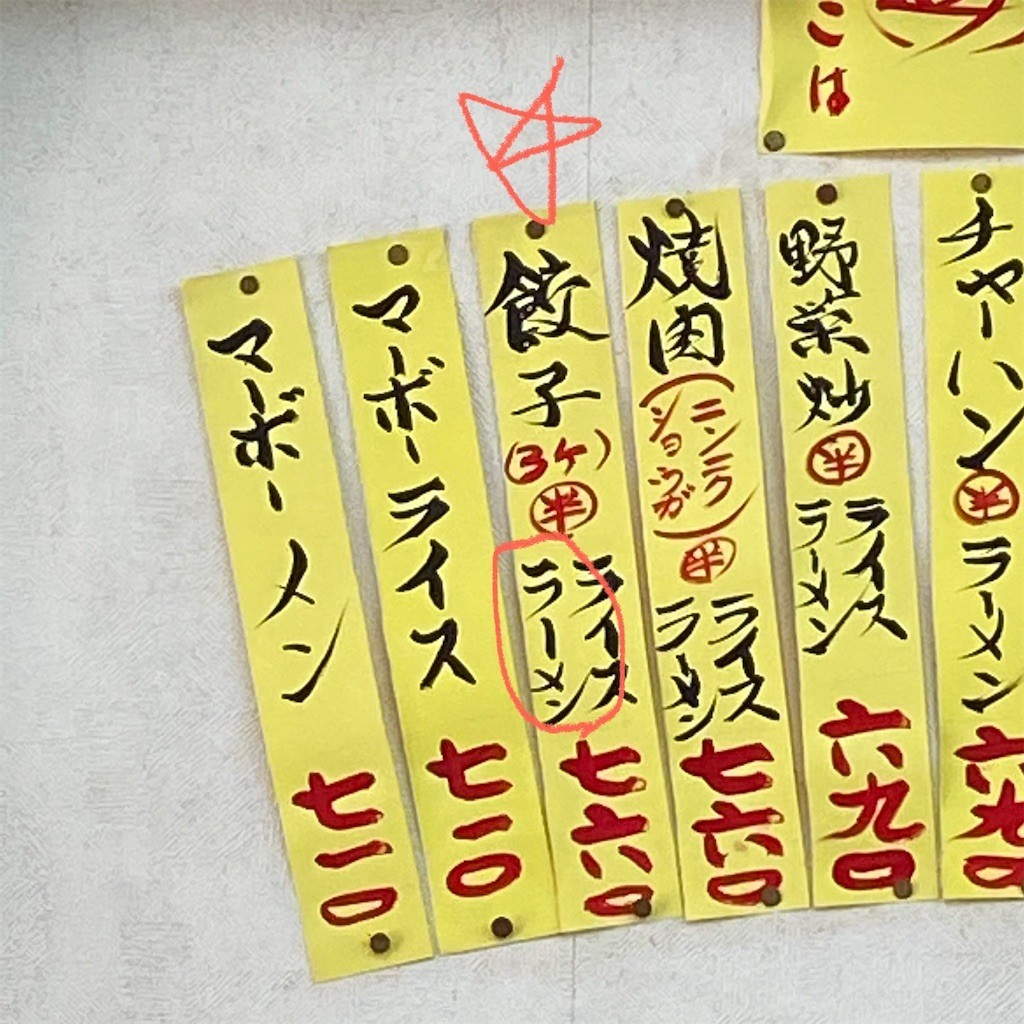 こは
チャーハン 半 ラーメン 六九〇
野菜炒 半 ライス ラーメン 六九〇
焼肉 (ニンニク ショウガ) 半 ライス ラーメン 七六〇
餃子 (3ケ) 半 ライス ラーメン 七六〇
マーボーライス 七一〇
マーボーメン 七一〇